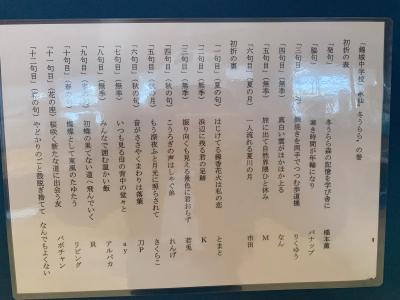 「錦城中学校 冬うらら」の巻
初折の表
「発句」(冬) 冬うらら森の記憶を学び舎に 橋本薫
「脇句」(冬) 寒き時間が年輪になり バナップ
「三句目」 鯛焼きを両手でつつむ歩道橋 りくゆう
「四句目」(無季) 真白い雲がほかほかとる なん
「五句目」(無季) 旅に出て自然界隈ひと休み M
「六句目」(夏の月) 一人流れる夏川の月 市田
初折の裏
「一句目」(夏の句) はじけてる線香花火は私の恋 とまと
「二句目」(無季) 浜辺に残る君の足跡 K
「三句目」(無季) 振り向くも見える景色に君おらず 若兎
「四句目」(秋の句) こうろぎの声はしゃぐ弟 れんげ
「五句目」(秋の月) もう深夜ふと月光に照らされて さくらこ
「六句目」(秋の句) 音がささやくまわりは落葉 刀P
「七句目」(無季) いつも見る母の背中の堂々と ay
「八句目」(無季) みんなで囲む温かい飯 アルパカ
「九句目」(春の句) 初蝶の果てない道へ飛んでいく R
「十句目」(春の句) 燦燦として東風のたゆたう リビング
「十一句目」(花の座) 桜咲く新たな道に出会う友 パポチャン
「十二句目」(花の句) やどかりのごと殻脱ぎ捨てて なんでもよくない